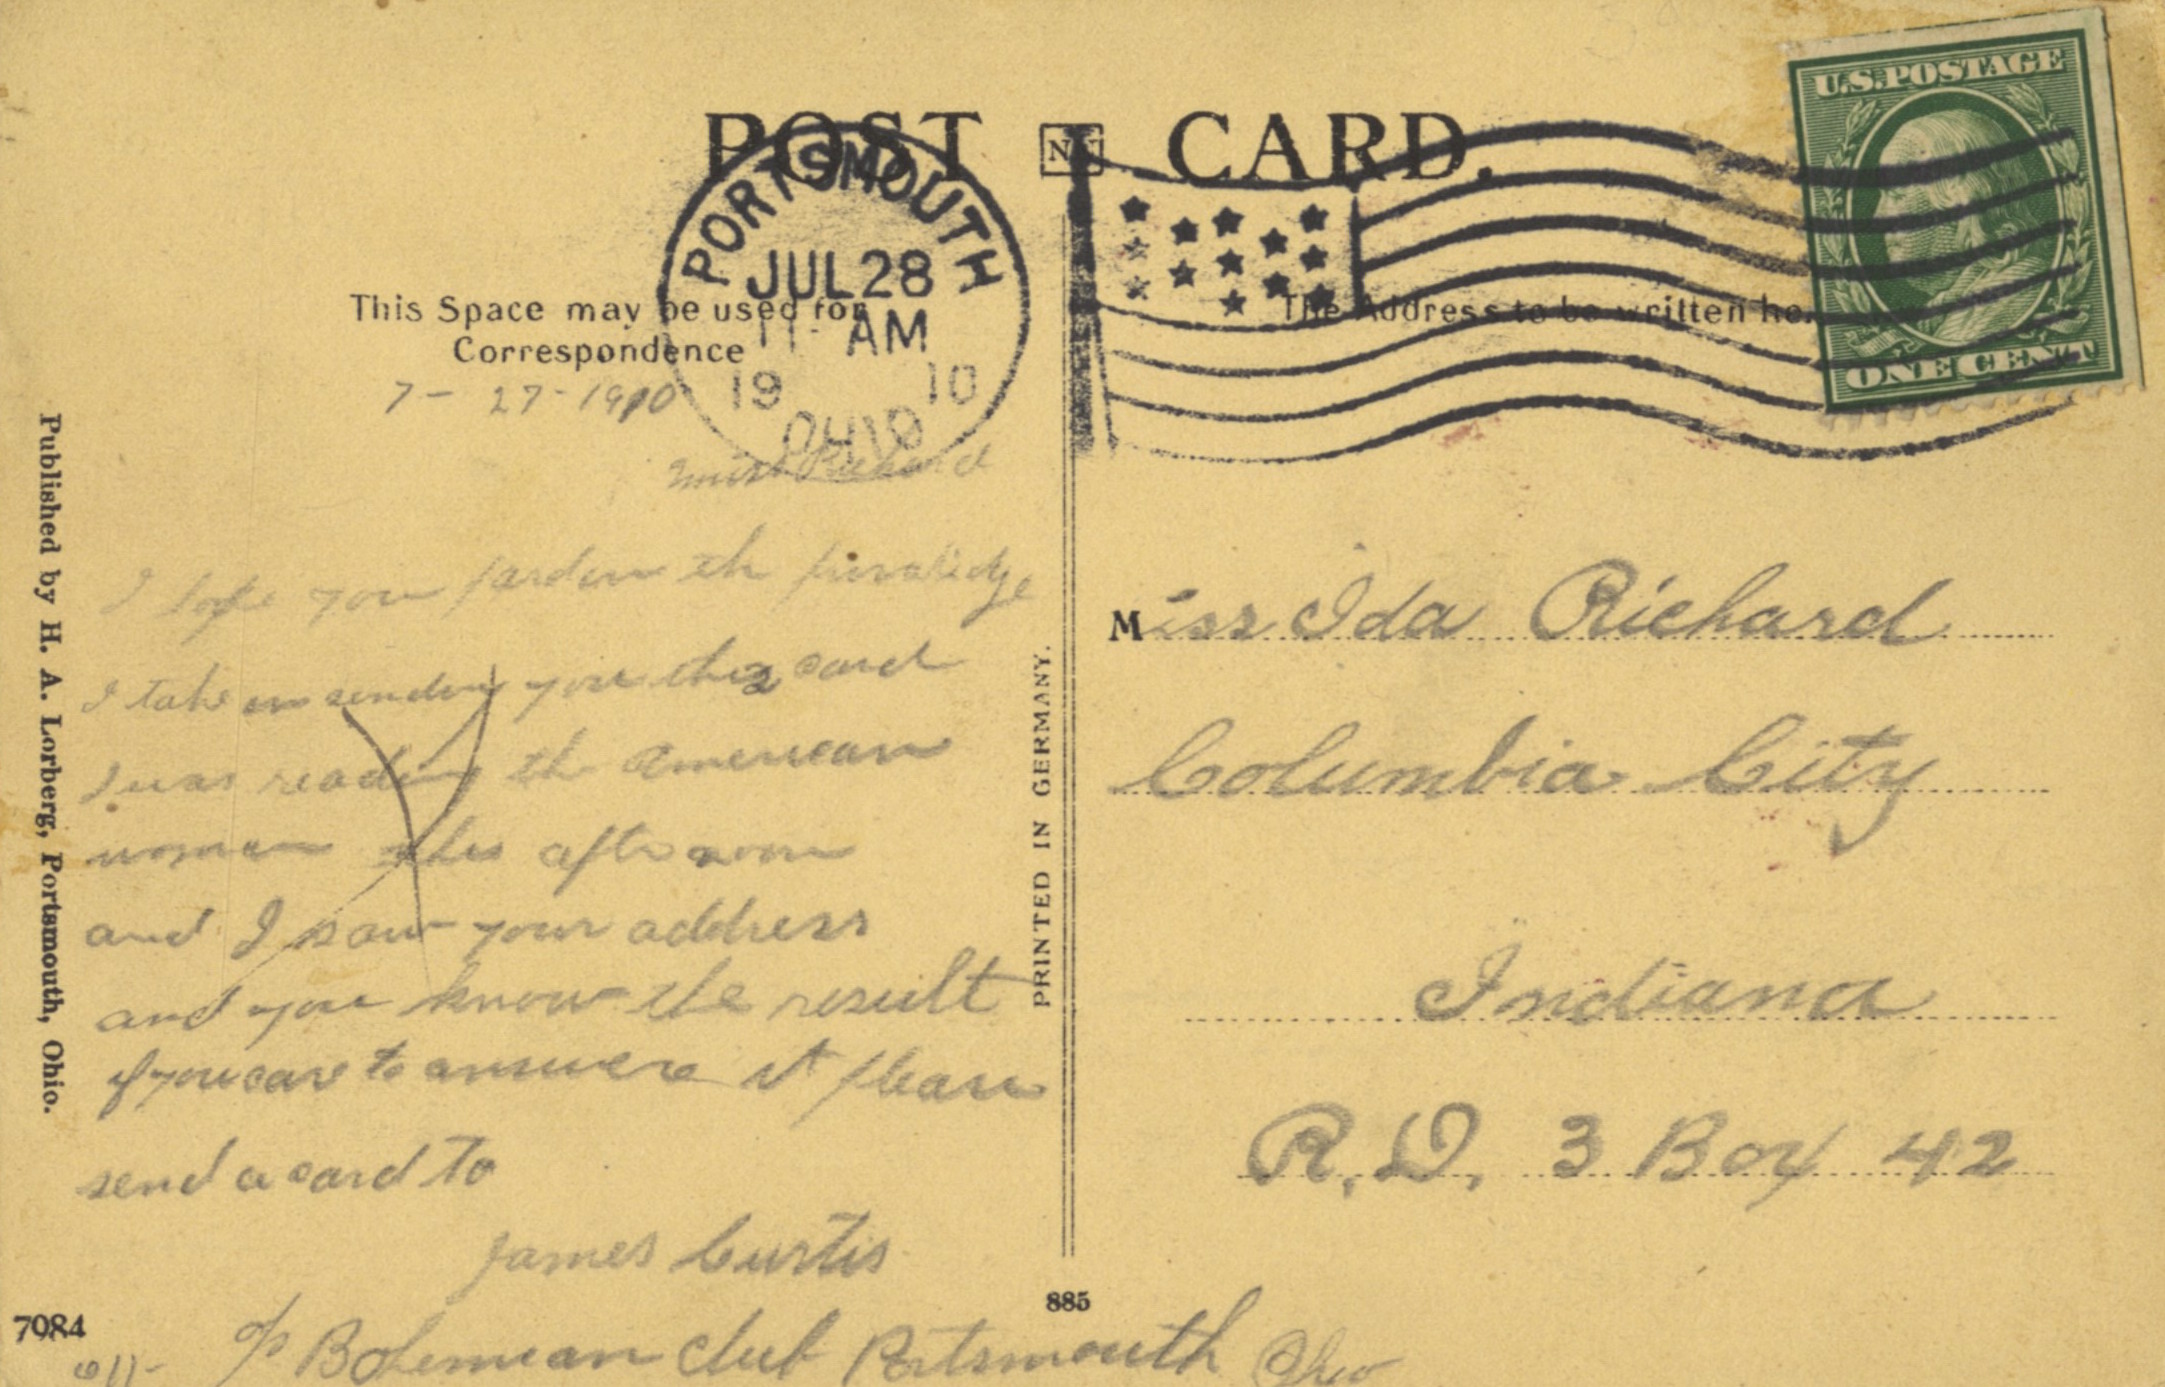 POST CARD.
U.S. POSTAGE
ONE CENT
PORTSMOUTH
JUL 28
11 - AM
19 10
OHIO
This Space may be used for
Correspondence
The Address to be written he
7 - 27 - 1910
Miss Richard
I hope you pardon the privalidge
I take in sending you this card
I was reading the American
woman this afternoon
and I saw your address
and you know the result
if you care to answere it please
send a card to
James Curtis
% Bohemian club Portsmouth Ohio
Miss Ida Richard
Columbia City
Indiana
R.D. 3 Box 42
Published by H. A. Lorberg, Portsmouth, Ohio.
PRINTED IN GERMANY.
7084
885